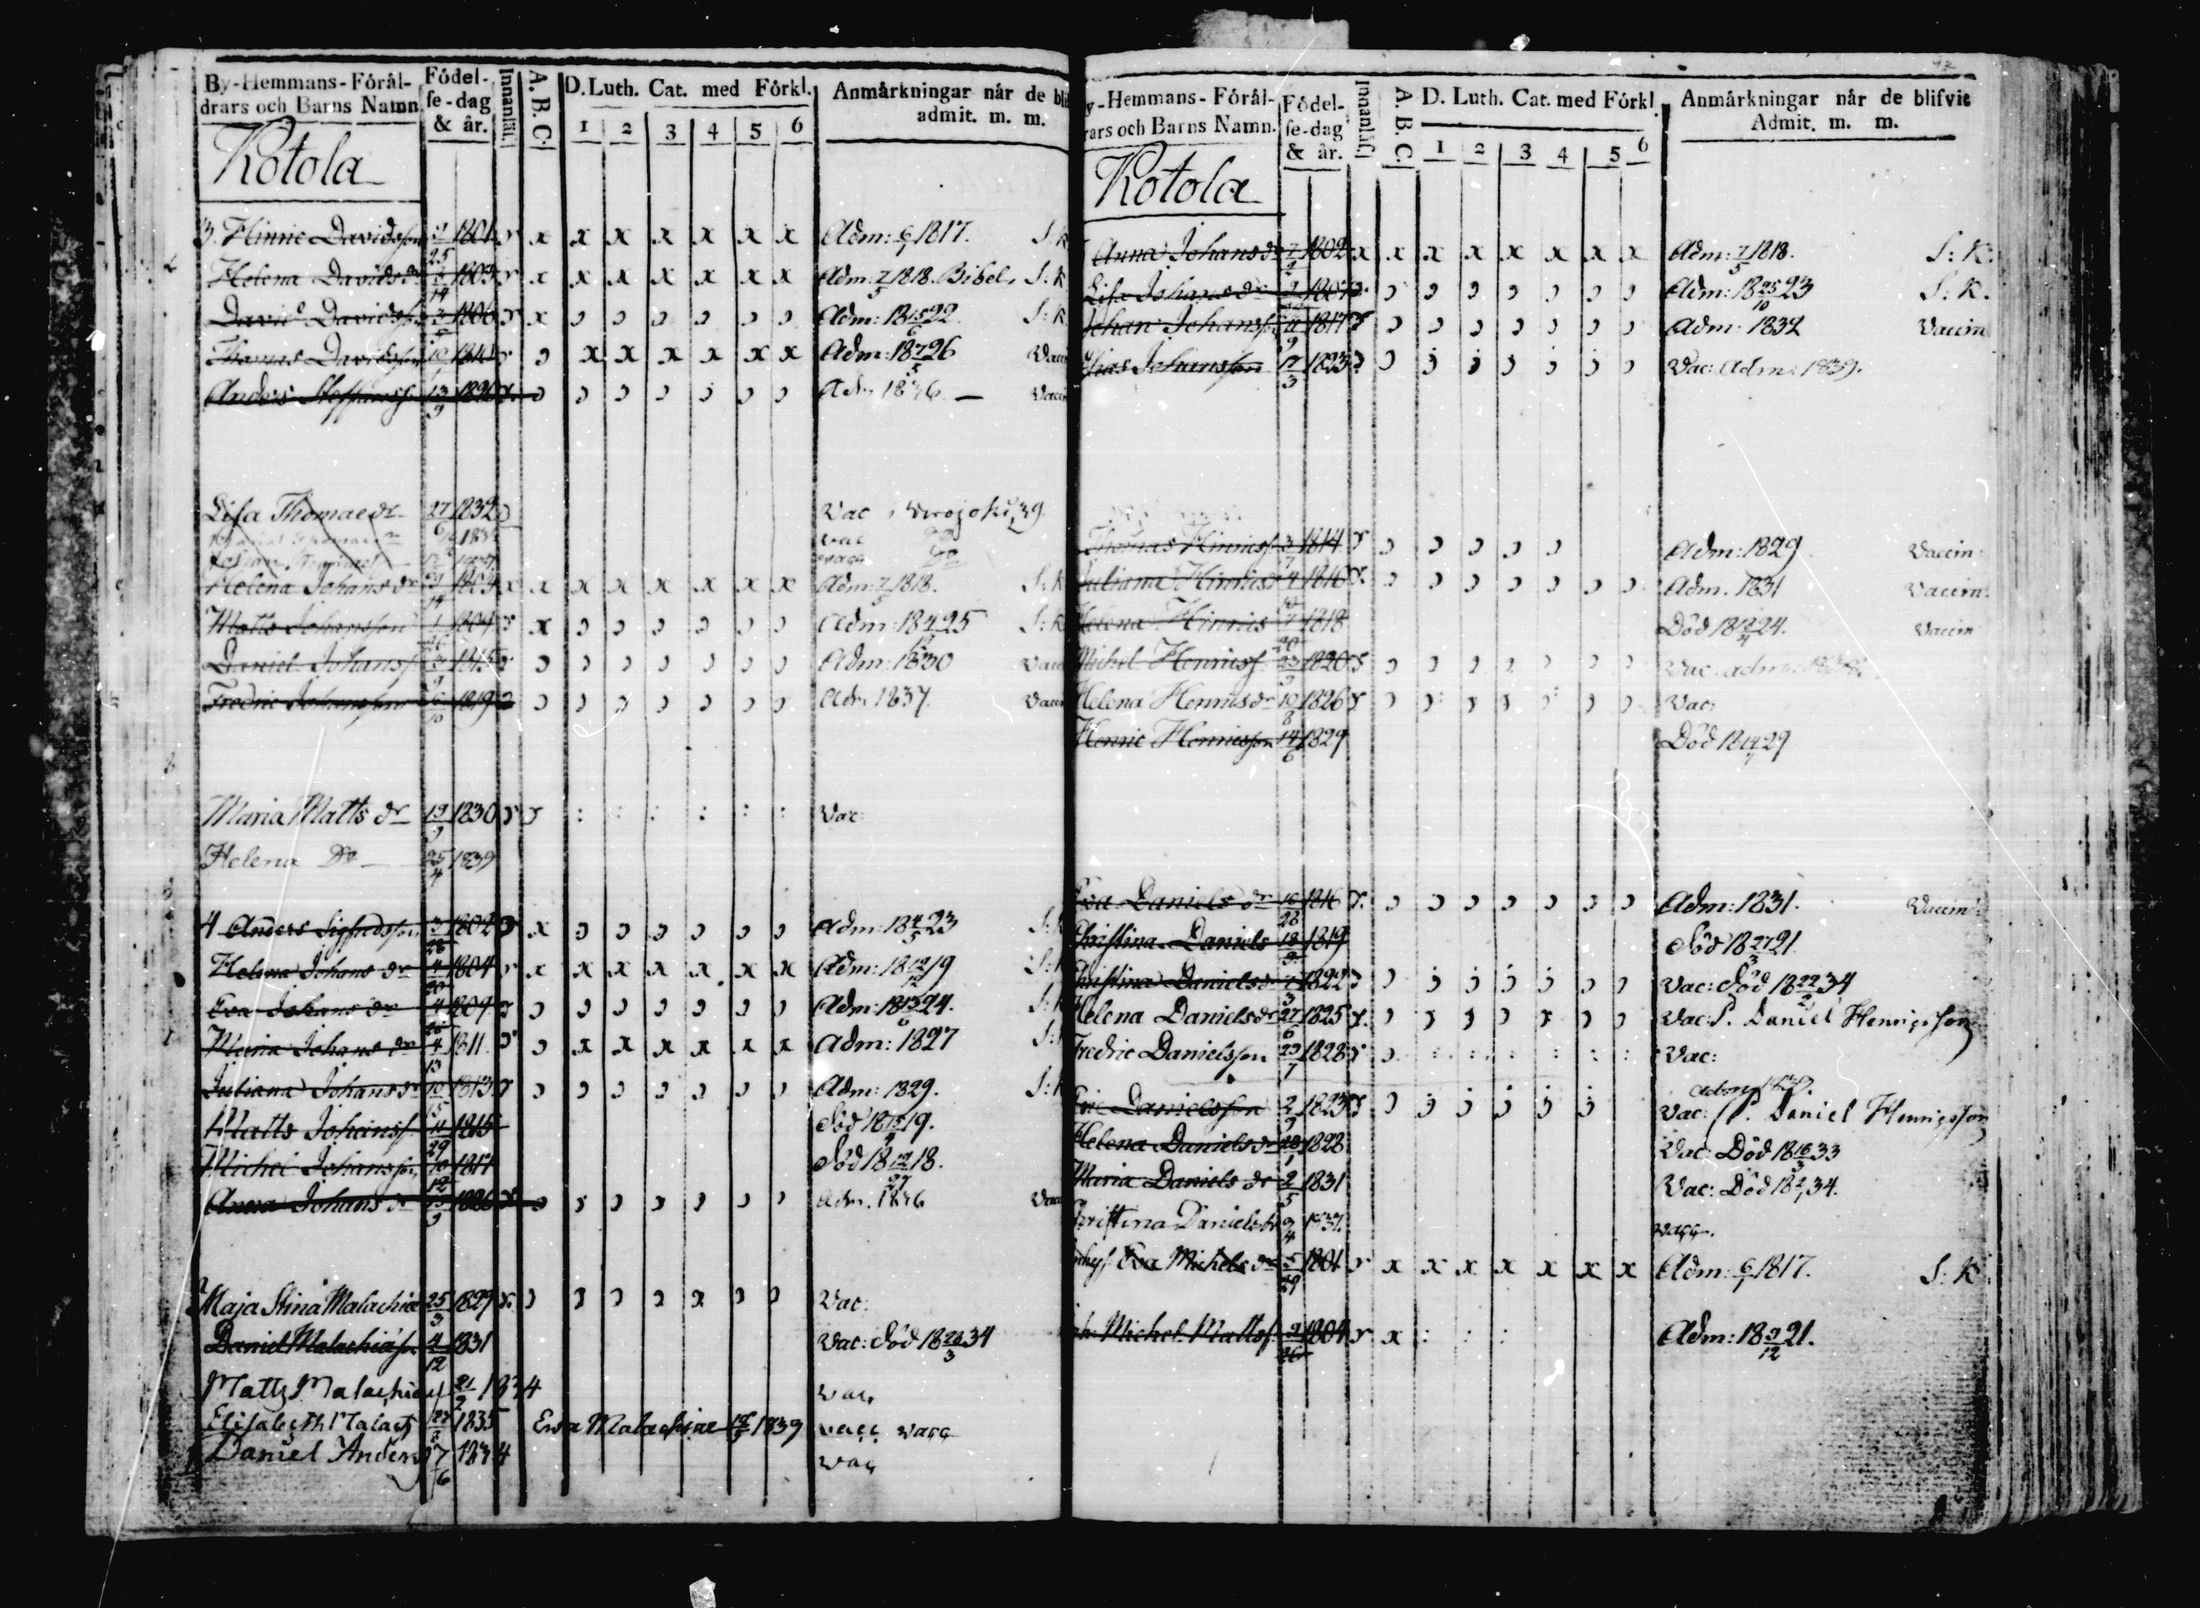 By-Hemmans-Förål-
drars och Barns Namn.
Födel-
se-dag
& år.
Innanläs.
A. B. C.
D. Luth. Cat. med Förkl.
1 2 3 4 5 6
Anmärkningar når de bli
admit. m. m.
Kotola
3. Hinric Davidsson 3/25 1801 x x x x x x x Adm: 6/1 1817. S: K
Helena Davids dr 2/14 1803 x x x x x x x Adm: 7/5 1818. Bibel. S: K
David Davidss. 3/5 1806 x Adm: 18 15/6 22 S: K
Thomas Davidsson 1811 x x x x x x Adm: 18 7/5 26 Vacc
Anders Steffanss. 13/9 1820 Adm 1836 — Vacc
Lisa Thomae dr 27/6 1832 Vac
Helena Johans dr 1804 x x x x x x x x Adm: 7/5 1818. S: K
Matts Johansson 1/26 1809 x Adm: 18 4/12 25 S: K
Daniel Johanss. 3/9 1815 Adm: 1830 Vacc
Fredric Johansson 6/10 1819 Adm 1837. Vaccin
Maria Matts dr 19/9 1830 Vac:
Helena Do 25/4 1839
4 Anders Sigfridsson 3/28 1802 x Adm: 18 4/5 23 S: K
Helena Johans dr 4/20 1804 x x x x x x x Adm: 18 12/12 19 S: K
Eva Johans dr 4 1809 Adm: 18 13/6 24. S: K
Maria Johans dr 4/13 1811 x x x x x x Adm: 1827 S:
Juliana Johans dr 10/5 1813 Adm: 1829. S: K
Matts Johanss. 11/29 1815 Död 18 19.
Michel Johansson 10/12 1817 Död 18 12/27 18.
Anna Johans dr 1820 Adm. 1836 Vacc
Maja Stina Malachiae 25/3 1829 Vac:
Daniel Malachiæs. 4/12 1831 Vac: Död 18 23/3 34
Matts Malachiæs 21/2 1834 Vac,
Elisabeth Malach 1835 Ewa Malachiae 18/5 1839 vacc vacc
Daniel Anders 7/6 1834 Vac
By-Hemmans-Förål-
drars och Barns Namn.
Födel-
se-dag
& år.
Innanläs.
A. B. C.
D. Luth. Cat. med Förkl.
1 2 3 4 5 6
Anmärkningar når de blifvit
Admit. m. m.
Kotola
Anna Johans dr 7/2 1802 x x x x x x x x Adm: 7/5 1818. S: K.
Lisa Johans dr 1807 Adm: 18 25/10 23 S: K.
Johan Johanss. 11/9 1817 Adm: 1832 Vaccin
Elias Johansson 17/3 1823 Vac: Adm: 1839.
Thomas Hinricss. 3/7 1814 Adm: 1829 Vaccin:
Juliana Hinrics 4/10 1816 Adm. 1831 Vaccin:
Helena Hinrics 7/20 1818 Död 18 12/4 24. Vaccin
Michel Henricss. 23/9 1820 Vac. adm.
Helena Henrics dr 19/8 1826 Vac:
Henric Henricsson 14/6 1829 Död 18 14/7 29
Eva Daniels dr 10/28 1816 Adm: 1831. Vaccin:
Christina Daniels 18/9 1819 Död 18 27/3 21.
Christina Daniels dr 1/3 1822 Vac: Död 18 22/2 34
Helena Daniels dr 27/6 1825 Vac: P. Daniel Henricsson
Fredric Danielsson 29/7 1828 Vac:
Eric Danielsson 2/9 1823 Vac: P. Daniel Henricsson
Helena Daniels dr 28/1 1828 Vac: Död 18 16/3 33
Maria Daniels dr 2/5 1831 Vac: Död 18 2/1 34.
Christina Daniels dr 9/4 1837. vacc.
Inhys Eva Michels dr 5/29 1801 x x x x x x x Adm: 6/1 1817. S: K
Inh: Michel Mattss. 2/26 1804 x Adm: 18 9/12 21.